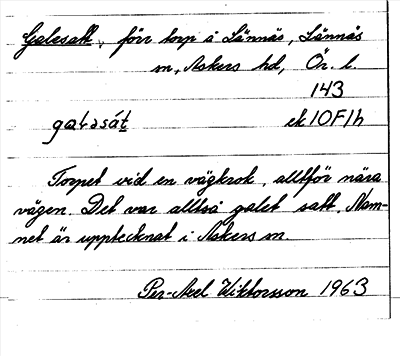 Galesatt, förr torp å Lännäs, Lännäs
sn, Askers hd, Ör. l.
143
galəsát ek 10F1h
Torpet vid en vägkrok, alltför nära
vägen. Det var alltså galet satt. Nam-
net är upptecknat i Askers sn.
Per-Axel Wiktorsson 1963